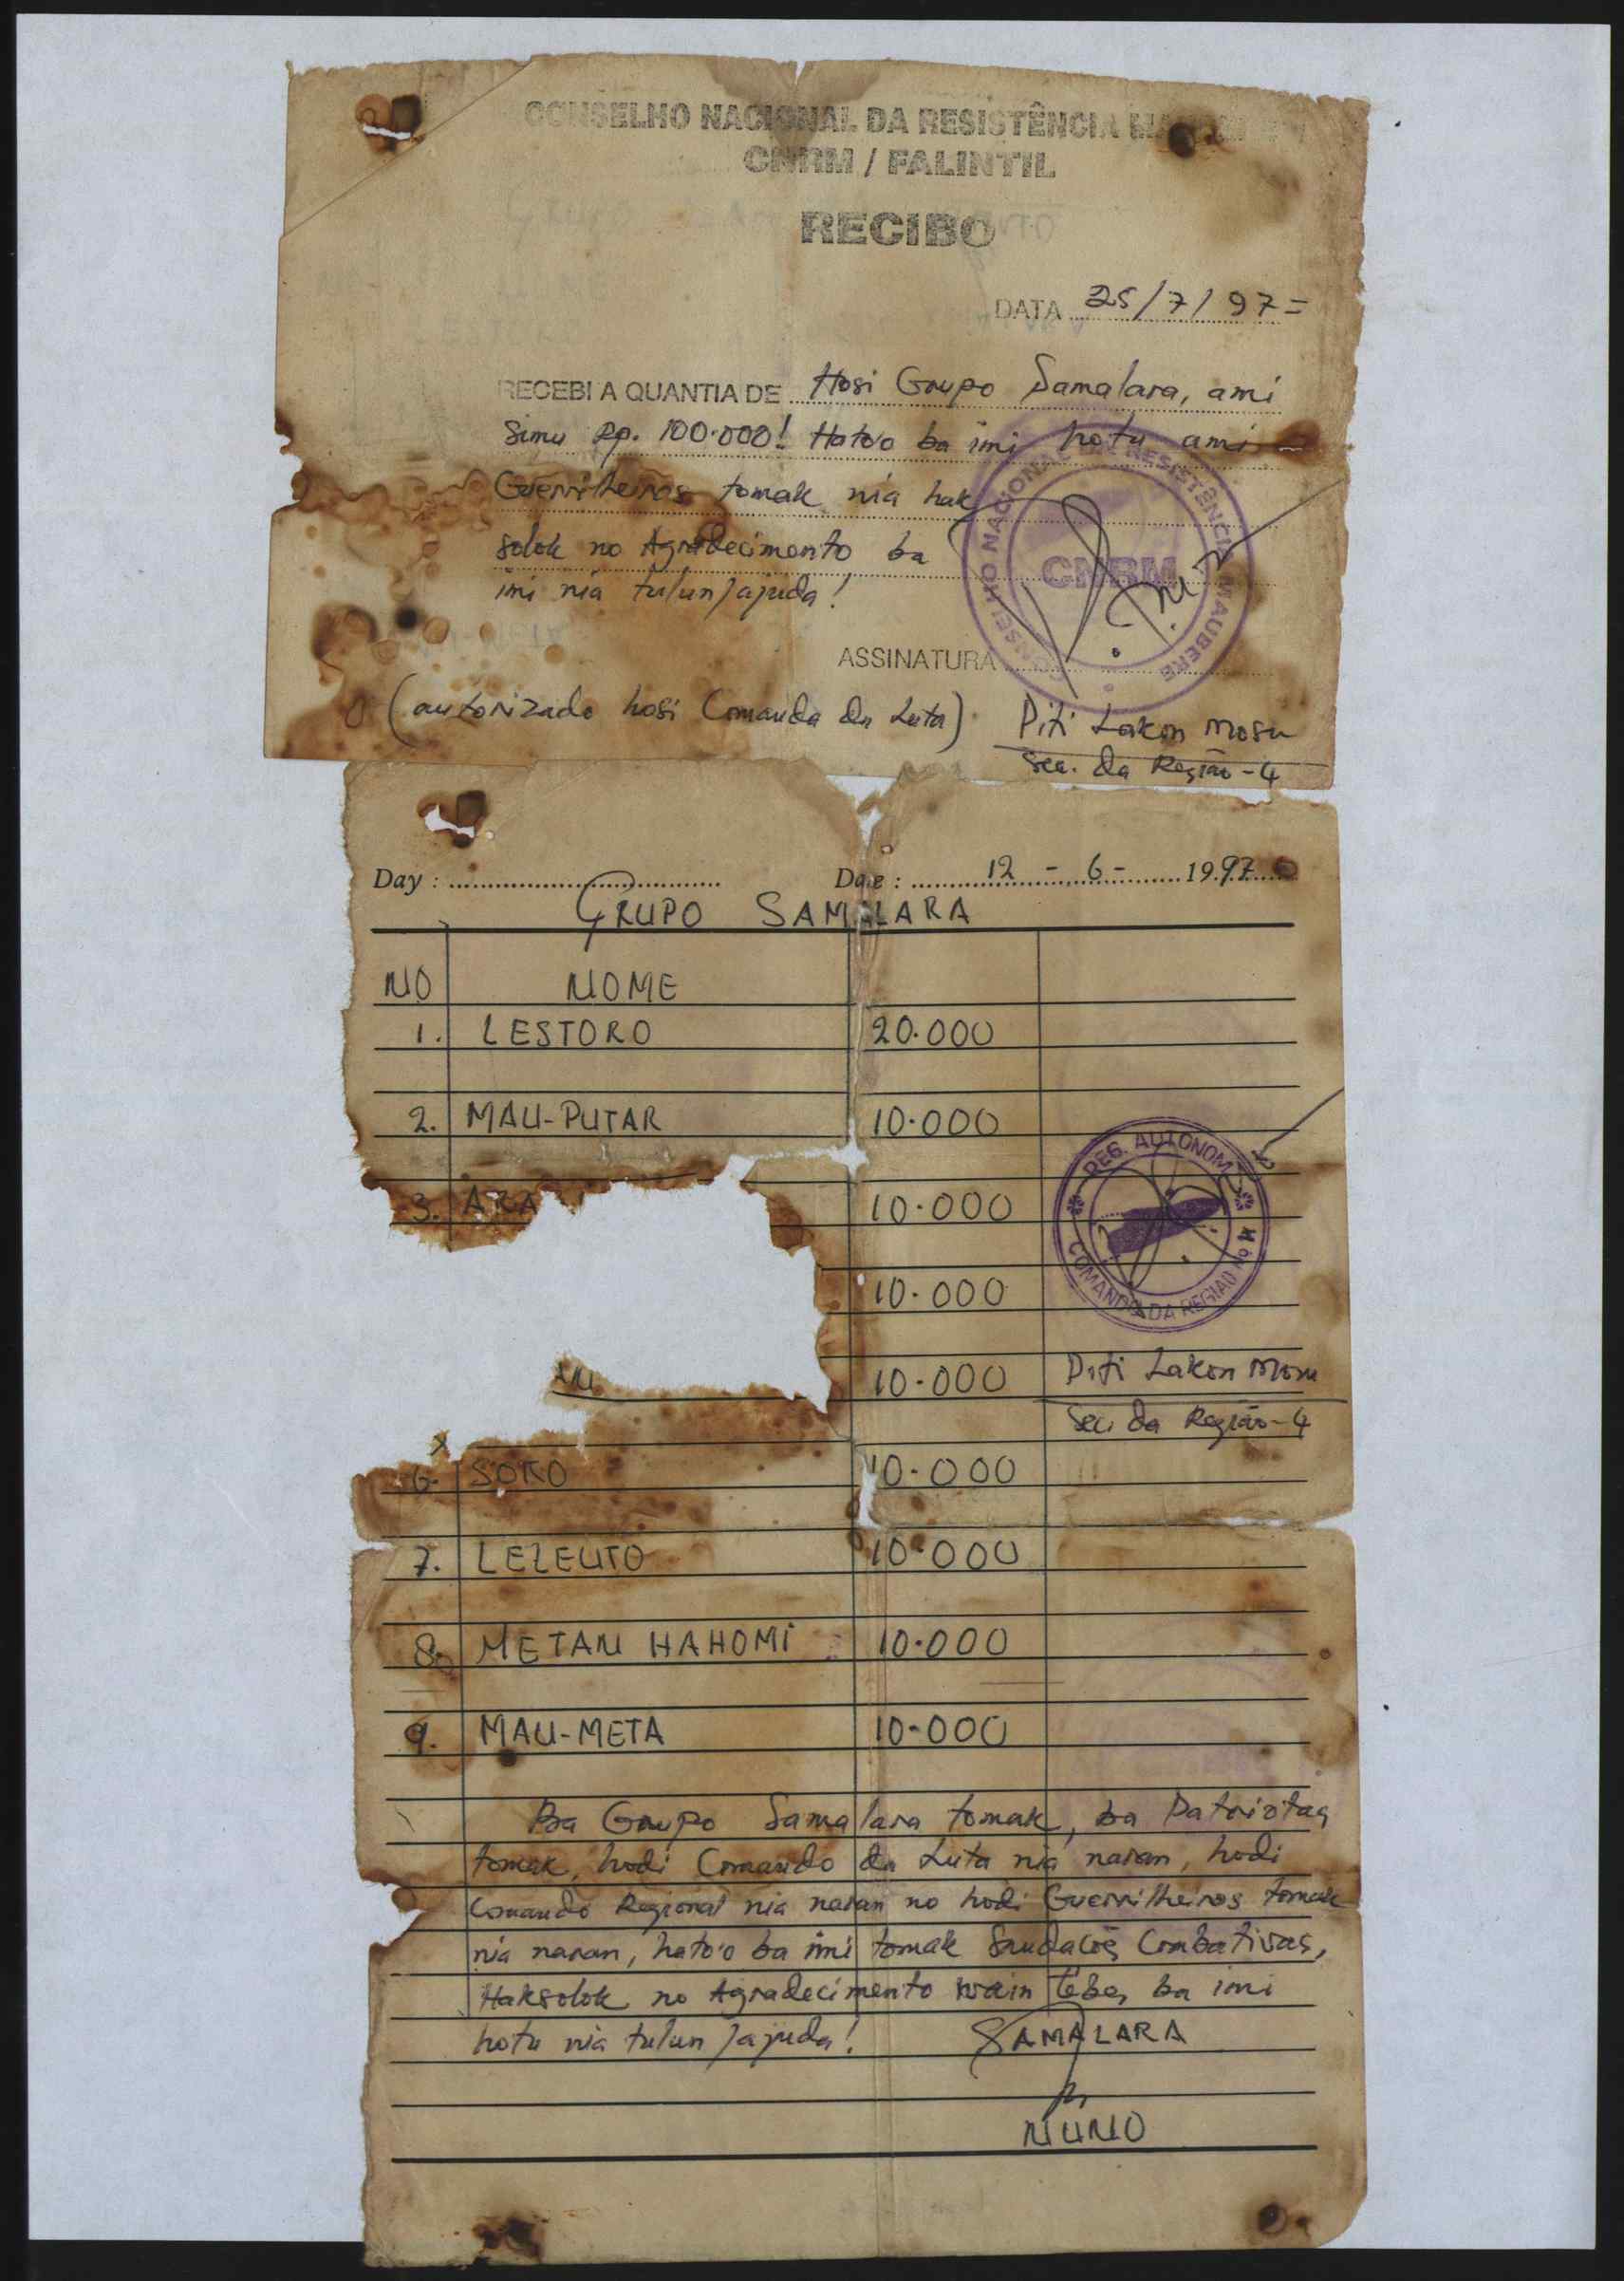 CONSELHO NACIONAL DA RESISTÊNCIA
CNRM / FALINTIL
RECIBO
DATA 25/7/97=
RECEBI A QUANTIA DE Hosi Grupo Samalara, ami
simu Rp. 100.000! Hato'o ba imi hotu ami
Guerrilheiros tomak nia hak
solok no Agradecimento ba
imi nia tulun/ajuda!
CONSELHO NACIONAL DA RESISTÊNCIA MAUBERE
CNRM
ASSINATURA
(autorizado hosi Comando da Luta) Piti Lakon Mosu
Sec. da Região-4
Day : Date : 12 - 6 - 1997
GRUPO SAMALARA
NO NOME
1. LESTORO 20.000
2. MAU-PUTAR 10.000
3. ARA 10.000
10.000
10.000
REG. AUTONOM
COMANDO DA REGIAO No 4
Piti Lakon Mosu
Sec. da Região-4
6. SORO 10.000
7. LEZEUTO 10.000
8. METAN HAHOMI 10.000
9. MAU-META 10.000
Ba Grupo Samalara tomak, ba Patriotas
tomak, hodi Comando da Luta nia naran, hodi
Comando Regional nia naran no hodi Guerrilheiros tomak
nia naran, hato'o ba imi tomak Saudacoẽs Combativas,
Haksolok no Agradecimento wain tebes ba imi
hotu nia tulun/ajuda!
SAMALARA
NUNO